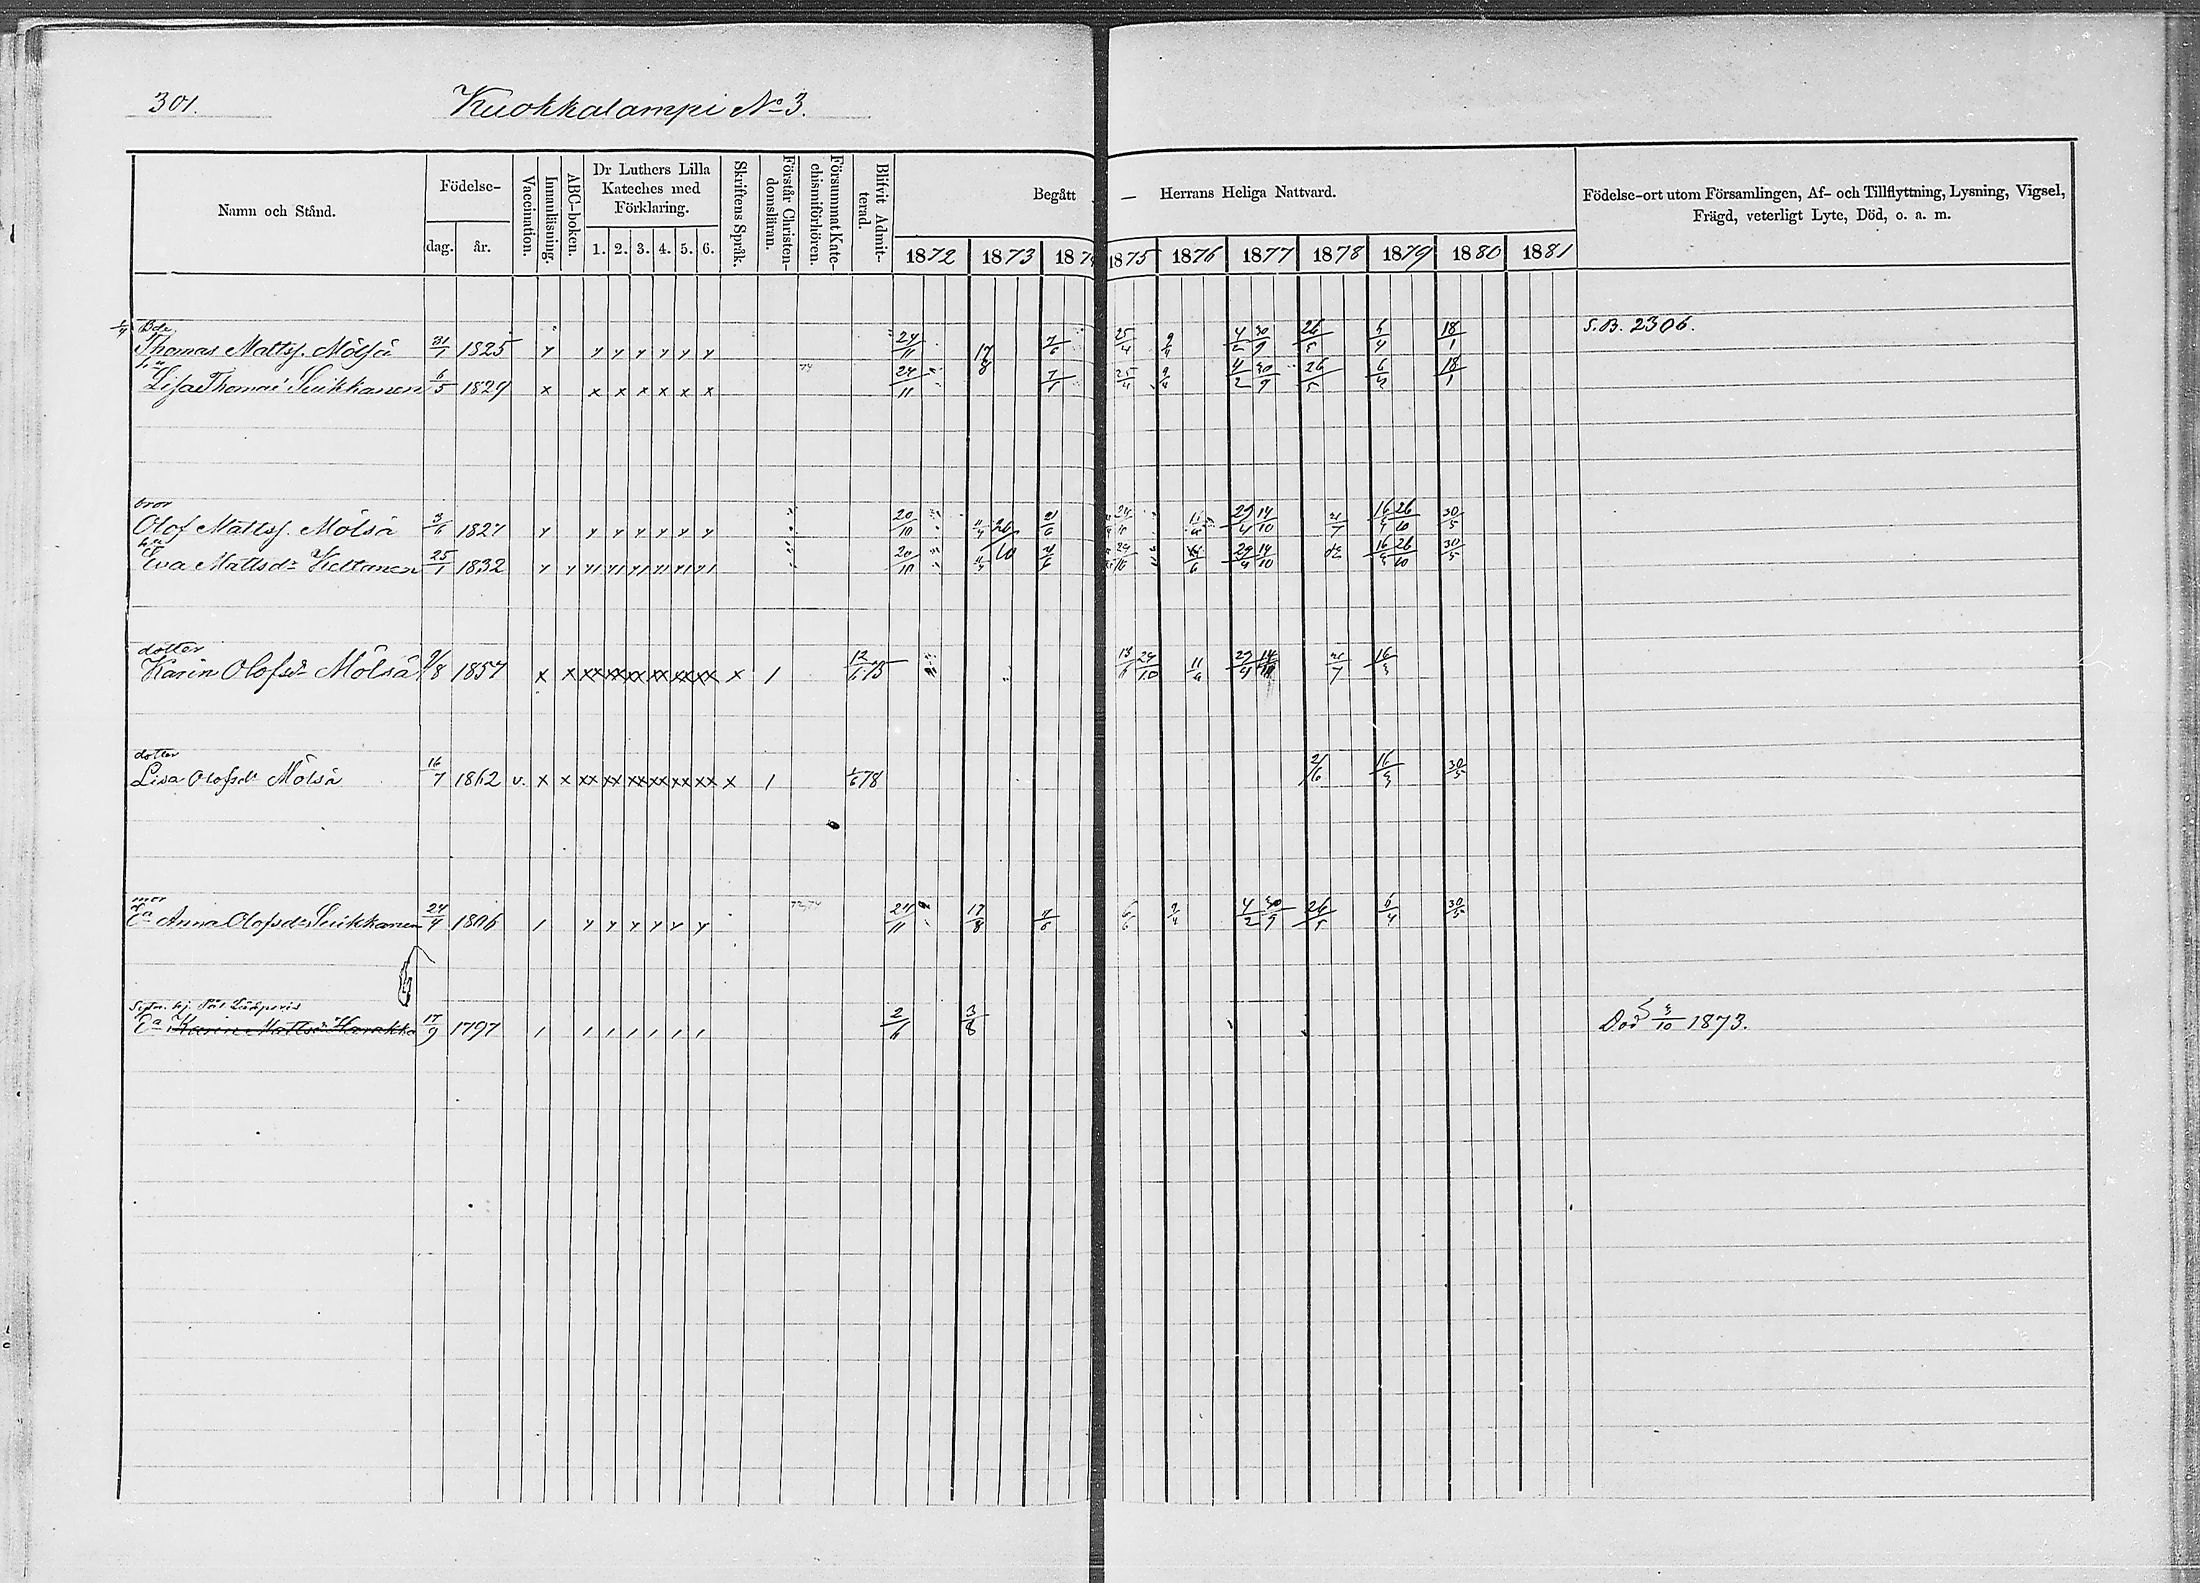 301.
Kuokkalampi No 3.
Namn och Stånd.
Födelse-
dag.
år.
Vaccination.
Innanläsning.
ABC-boken.
Dr Luthers Lilla Kateches med Förklaring.
1. 2. 3. 4. 5. 6.
Skriftens Språk.
Förstår Christendomsläran.
Försummat Katechismiförhören.
Blifvit Admitterad.
Begått — Herrans Heliga Nattvard.
1872 1873 187 1875 1876 1877 1878 1879 1880 1881
Födelse-ort utom Församlingen, Af- och Tillflyttning, Lysning, Vigsel,
Frägd, veterligt Lyte, Död, o. a. m.
Thomas Mattss. Mölsä 31/7 1825 24/11 17/8 7/6 25/4 9/4 4/2 30/9 26/5 6/4 18/1 S.B. 2306.
hu
Lisa Thomasd. Suikkanen 6/5 1829 24/11 25/4 9/4 4/2 30/9 26/5 6/4 18/1
bror
Olof Mattss. Mölsä 3/6 1827 20/10 26/10 21/6 29/4 14/10 21/7 16/3 26/10 30/5
hu
Eva Mattsdr Kettanen 25/1 1832 20/10 29/4 14/10 16/3 26/10 30/5
dotter
Karin Olofsdr Mölsä 9/8 1857 12/6 75 13/6 24/10 29/4 21/7 16/3
dotter
Lisa Olofsdr Mölsä 16/7 1862 v. 78 2/6 16/3 30/5
mor
Ea Anna Olofsdr Suikkanen 24/4 1806 24/11 17/8 7/6 6/6 9/4 4/2 30/9 26/5 6/4 30/5
Ea Karin Mattsdr Harakka 17/9 1797 3/8 Död 3/10 1873.